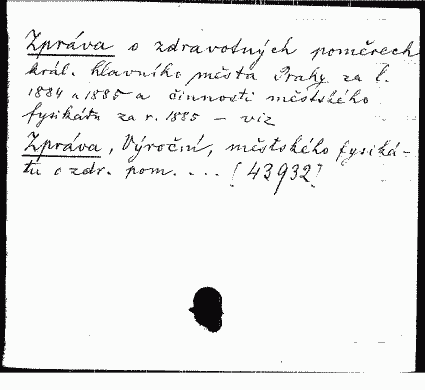 Zpráva o zdravotných poměrech
král. hlavního města Prahy za l.
1884 a 1885 a činnosti městského
fysikátu za r. 1885 – viz
Zpráva, Výroční, městského fysiká-
tu o zdr. pom. . . . [43932]